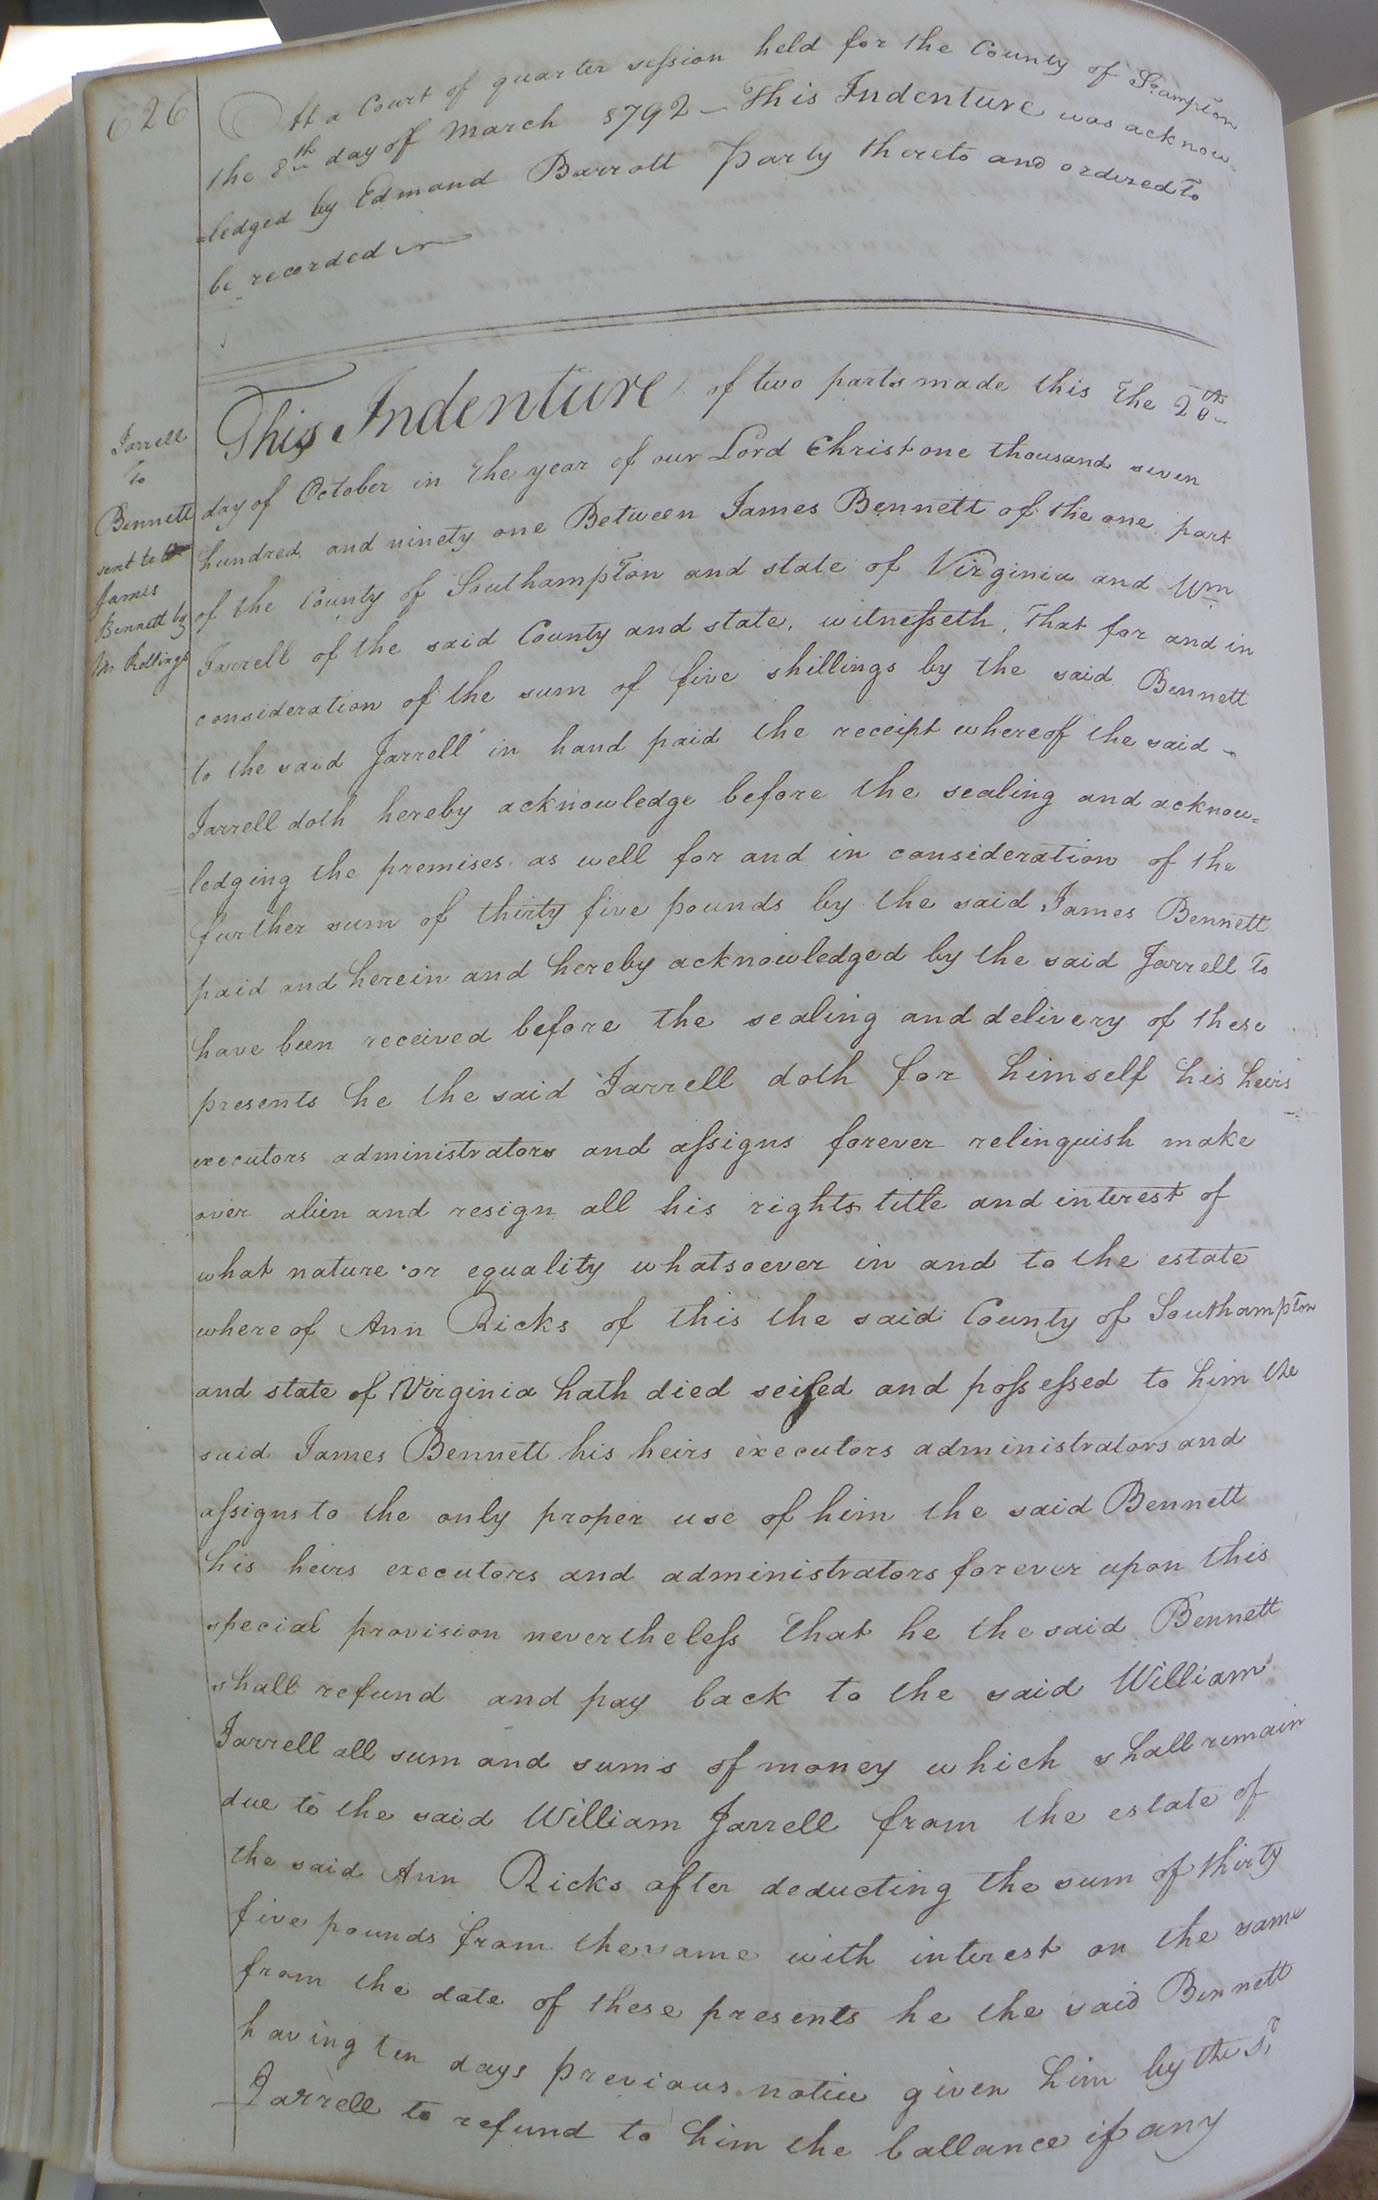 626
At a Court of quarter session held for the County of So:ampton
the 8th day of March 1792 - This Indenture was acknow-
=ledged by Edmand Barrott party thereto and ordered to
be recorded
Jarrell
To
Bennett
sent to
James
Bennett by
Mr Rollings
This Indenture of two parts made this the 20th
day of October in the year of our Lord Christ one thousand seven
hundred and ninety one Between James Bennett of the one part
of the County of Southampton and state of Virginia and Wm
Jarrell of the said County and state, witnesseth, That for and in
consideration of the sum of five shillings by the said Bennett
to the said Jarrell in hand paid the receipt whereof the said -
Jarrell doth hereby acknowledge before the sealing and acknow=
=ledging the premises as well for and in consideration of the
further sum of thirty five pounds by the said James Bennett
paid and herein and hereby acknowledged by the said Jarrell to
have been received before the sealing and delivery of these
presents he the said Jarrell doth for himself his heirs
executors administrators and assigns forever relinquish make
over alien and resign all his rights title and interest of
what nature or equality whatsoever in and to the estate
where of Ann Ricks of this the said County of Southampton
and state of Virginia hath died seised and possessed to him the
said James Bennett his heirs executors administrators and
assigns to the only proper use of him the said Bennett
his heirs executors and administrators forever upon this
special provision nevertheless that he the said Bennett
shall refund and pay back to the said William
Jarrell all sum and sums of money which shall remain
due to the said William Jarrell from the estate of
the said Ann Ricks after deducting the sum of thirty
five pounds from the same with interest on the same
from the date of these presents he the said Bennett
having ten days previous notice given him by the sd
Jarrell to refund to him the ballance if any